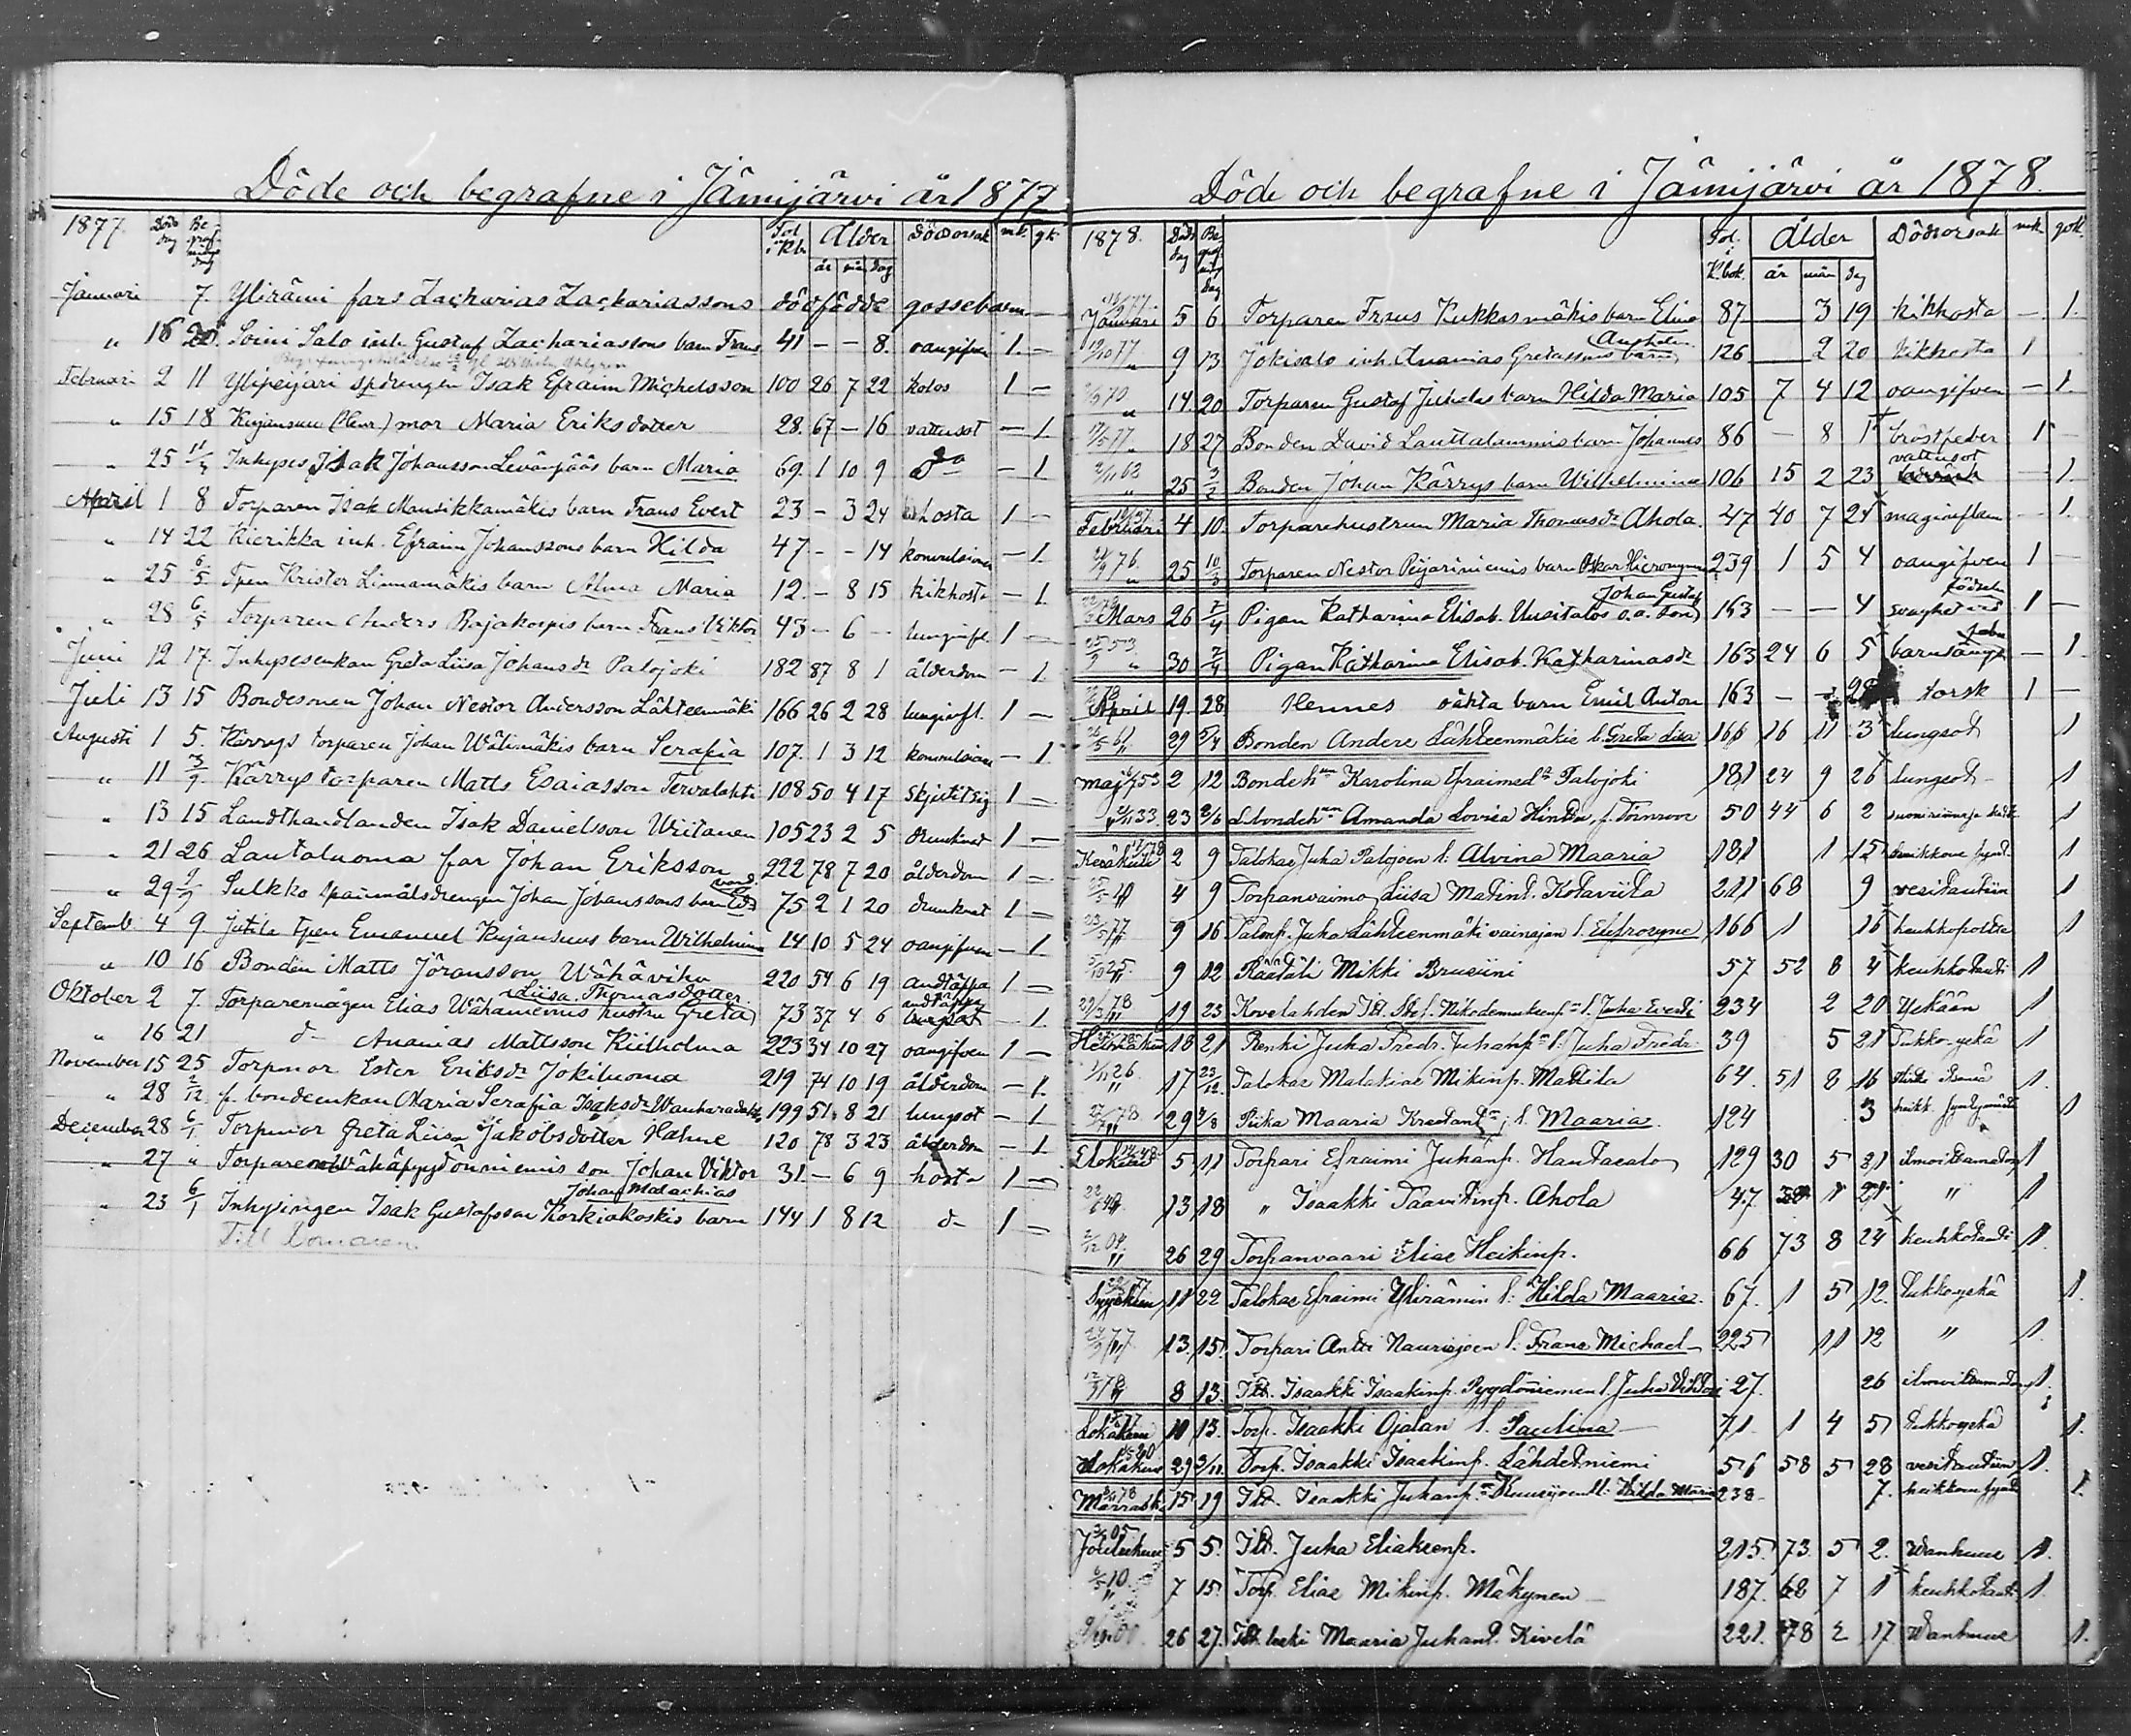 Döde och begrafne i Jämijärvi år 1877
1877. Döds dag Begrafnings dag Fol. i Kb. Ålder Dödsorsak mk. qk.
år mån dag
Januari 7. Ylirämi fars Zacharias Zachariassons dödfödde gossebarn —
" 16 20. Soini Salo inh. Gustaf Zachariassons barn Frans 41 — — 8. oangifven 1. —
Februari 2 11 Ylipeijari spdrengen Isak Efraim Michelsson 100 26 7 22 kolos 1 —
" 15 18 Kujansuu mor Maria Eriksdotter 28. 67 — 16 vattusot — 1.
" 25 11/4 Inhyses Isak Johansson Levänpääs barn Maria 69. 1 10 9 do — 1
April 1 8 Torparen Isak Mansikkamäkis barn Frans Evert 23 — 3 24 hosta 1 —
" 14 22 Kierikka inh. Efraim Johanssons barn Hilda 47 — — 14 konvulsioner — 1.
" 25 6/5 Tpen Krister Linnamäkis barn Alma Maria 12. — 8 15 kikhosta — 1
" 28 6/5 Torparen Anders Rajakorpis barn Frans Viktor 43 — 6 — lunginfl. 1 —
Juni 12 17. Inhysesenkan Greta Liisa Johansdr Palojoki 182 87 8 1 ålderdom — 1.
Juli 13 15 Bondesonen Johan Nestor Andersson Lähteenmäki 166 26 2 28 lunginfl. 1 —
Augusti 1 5. Kärrys torparen Johan Wälimäkis barn Serafia 107. 1 3 12 konvulsioner — 1.
" 11 3/9 Kärrys torparen Matts Esaiasson Tervalahti 108 50 4 17 skjutit sig 1 —
" 13 15 Landthandlanden Isak Danielsson Wiitanen 105 23 2 5 drunknat 1 —
" 21 26 Lautaluoma far Johan Eriksson 222 78 7 20 ålderdom 1 —
" 29 2/9 Sulkko spannmålsdrengen Johan Johanssons barn 75 2 1 20 drunknat 1 —
Septemb. 4 9. Jutila tpen Emanuel Kujansuus barn Wilhelmina 14 10 5 24 oangifven — 1.
" 10 16 Bonden Matts Jöransson Wähävihu 220 54 6 19 andtäppa 1 —
Liisa Thomasdotter
Oktober 2 7. Torparemågen Elias Wähäniemis hustru Greta 73 37 4 6 andtäppa — 1.
" 16 21 d— Ananias Mattsson Kiilholma 223 34 10 27 oangifven 1 —
November 15 25 Torpmor Ester Eriksdr Jokiluoma 219 74 10 19 ålderdom — 1.
" 28 2/12 f. bondeenkan Maria Serafia Isaksdr 199 51 8 21 lungsot — 1
December 28 6/1 Torpmor Greta Liisa Jakobsdotter Hahne 120 78 3 23 ålderdom — 1.
" 27 " Torparen Wähäpyytönniemis son Johan Viktor 31. — 6 9 hosta 1 —
Johan Malachias
" 23 6/1 Inhysingen Isak Gustafsson Korkiakoskis barn 144 1 8 12 d— 1 —
Till Domaren.
Döde och begrafne i Jämijärvi år 1878.
1878. Döds dag Begrafnings dag Fol. i K.bok. Ålder Dödsorsak mk. qvk.
år mån dag
Januari 5 6. Torparen Frans Kukkasmäkis barn Elina 87 — 3 19 kikhosta — 1.
" 9 13 Jokisalo inh. Ananias Gretassons barn 126 — 2 20 kikhosta 1
" 14 20 Torparen Gustaf Juholas barn Hilda Maria 105 7 4 12 oangifven — 1.
" 18 27 Bonden David Lauttalammis barn Johannes 86 — 8 1 bröstfeber 1 —
" 25 3/2 Bonden Johan Kärrys barn Wilhelmina 106 15 2 23 vattusot — 1.
Februari 4 10. Torparehustrun Maria Thomasdr Ahola. 47 40 7 24 maginflam — 1.
" 25 10/3 Torparen Nestor Peijariniemis barn Oskar Hieronymus 239 1 5 4 oangifven 1 —
Johan Gustaf
Mars 26 7/4 Pigan Katharina Elisab. Uusitalos o.ä. son 163 — — 4 svaghet vid födseln 1 —
" 30 7/4 Pigan Katharina Elisab. Katharinasdr 163 24 6 5 barnsängsfeber — 1.
April 19 28 Hennes oäkta barn Emil Anton 163 — — 28 torsk 1 —
" 29 5/4 Bonden Anders Lähteenmäkis b. Greta Liisa 166 16 11 3 lungsot 1
Maj 2 12 Bondehun Karolina Efraimsdr Palojoki 181 24 9 26 lungsot 1
" 23 2/6 bondehun Amanda Lovisa 50 44 6 2 1
Kesäkuu 2 9 Talokas Juha Palojoen l. Alvina Maaria 181 1 15 heikkous synt. 1
" 4 9 Torpanvaimo Liisa Matint. Kotaviita 211 68 9 vesitautiin 1
" 9 16 Talonp. Juha Lähteenmäki vainajan l. Eufrosyne 166 1 16 keuhkopoltto 1
" 9 12 Räätäli Mikki Brusiini 57 52 8 4 keuhkotauti 1
" 19 23 Kovelahden Itl. l. Juha Everti 234 2 20 Yskään 1
Heinäkuu 18 21 Renki Juha Fredr. Juhanp. l. Juha Fredr. 39 5 21 Tukkoyskä 1
" 17 23/12 Talokas Malakias Mikinp. Mattila 64. 51 8 16 1.
" 29 3/8 Piika Maaria l. Maaria. 124 3 1
Elokuu 5 11 Torpari Efraimi Juhanp. Hautasalo 129 30 5 21 ilmoittamaton 1
" 13 18 " Isaakki Taavitinp. Ahola 47. 1 21. " 1
" 26 29 Torpanvaari Elias Heikinp. 66 73 8 24 keuhkotauti 1.
Syyskuu 11 22 Talokas Efraimi Ylirämin l. Hilda Maaria. 67. 1 5 12. Tukkoyskä 1.
" 13. 15. Torpari Antti Naurisjoen l. Frans Michael 225 11 12 " 1.
" 8 13. Itl. Isaakki Isaakinp. Pyydönniemen l. Juha Vihtori 27. 26 ilmoittamaton 1.
Lokakuu 10 13. Torp. Isaakki Ojalan l. Paulina 71. 1 4 5 Tukkoyskä 1.
Lokakuu 29 3/11. Torp. Isaakki Isaakinp. Lähdetniemi 56 58 5 28 vesitautiin 1.
Marrask. 15 19 Itl. Isaakki Juhanp. l. Hilda Maria 238. 7. heikkous synt. 1.
Joulukuu 5 5. Itl. Juha Eliaksenp. 215. 73. 5 2. Wanhuus 1.
" 7 15. Torp. Elias Mikinp. Mäkynen 187. 68 7 1 keuhkotauti 1.
26 27. Itl. leski Maaria Juhant. Kivelä 221. 78 2 17 Wanhuus 1.